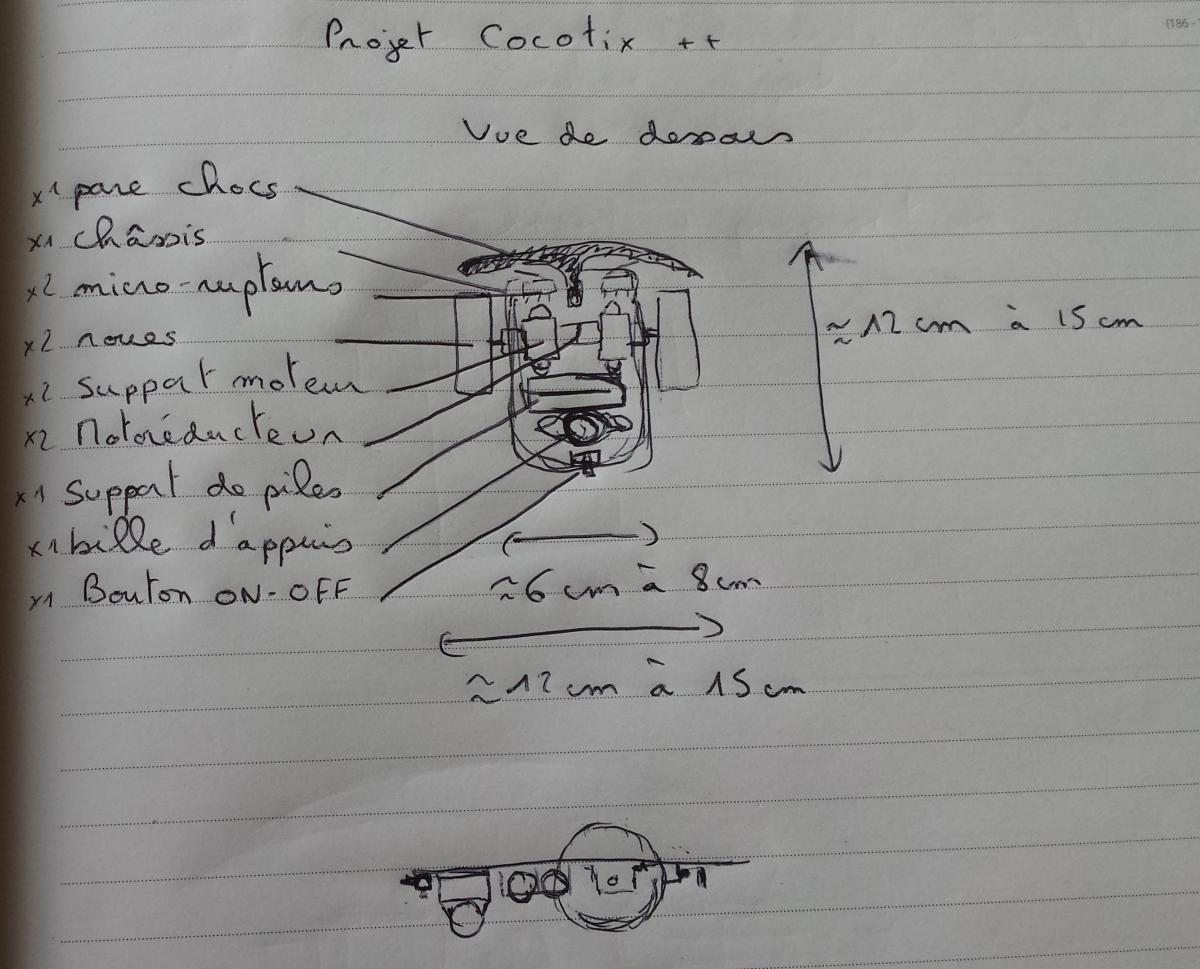 Projet Cocotix ++
Vue de dessous
x1 pare chocs
x1 châssis
x2 micro-rupteurs
x2 roues
x2 support moteur
x2 Motoréducteur
x1 support de piles
x1 bille d'appuis
x1 Bouton ON-OFF
≈ 12 cm à 15 cm
≈ 6 cm à 8 cm
≈ 12 cm à 15 cm